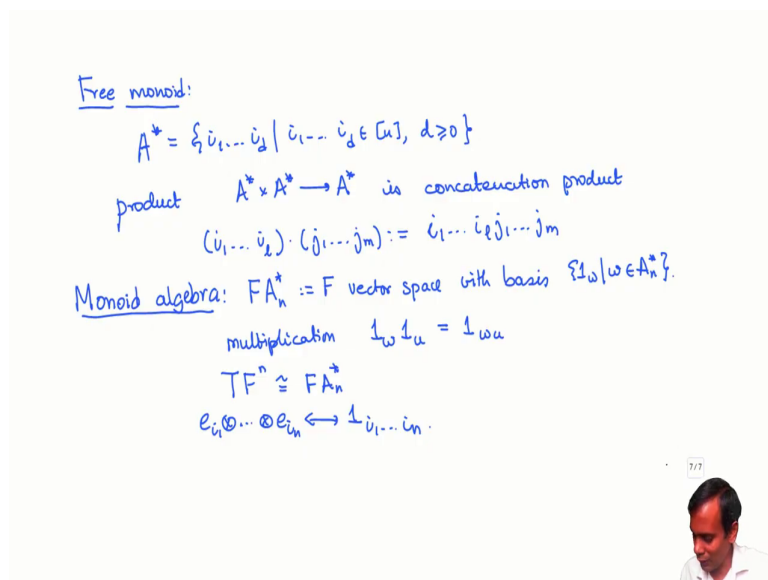 Free monoid:
A* = {i₁... i_d | i₁... i_d ∈ [n], d ≥ 0}
product A* × A* → A* is concatenation product
(i₁... i_l) · (j₁... j_m) := i₁... i_l j₁... j_m
Monoid algebra: FA*_n := F vector space with basis {1_w | w ∈ A*_n}.
multiplication 1_w 1_u = 1_wu
TFⁿ ≅ FA*_n
e_i₁ ⊗ ... ⊗ e_i_n ↔ 1_i₁...i_n.
7/7